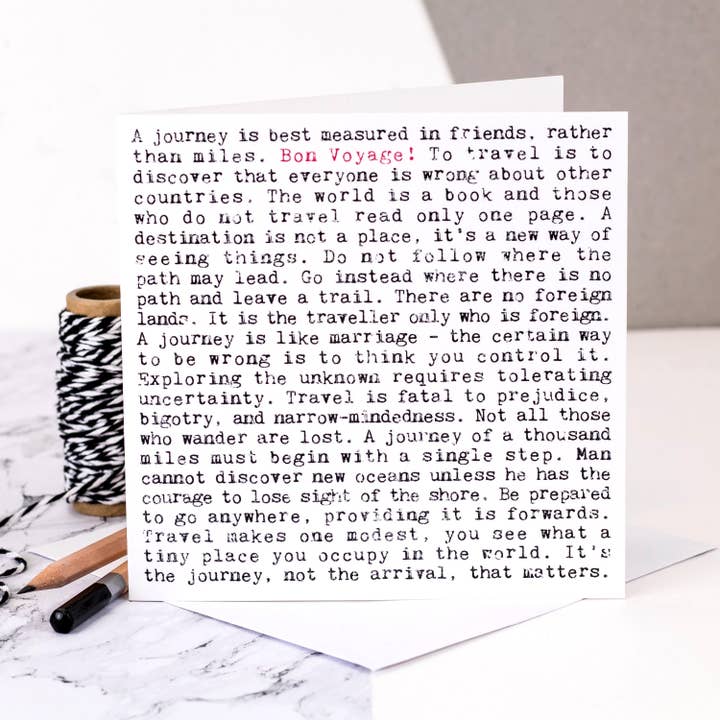 A journey is best measured in friends, rather
than miles. Bon Voyage! To travel is to
discover that everyone is wrong about other
countries. The world is a book and those
who do not travel read only one page. A
destination is not a place, it's a new way of
seeing things. Do not follow where the
path may lead. Go instead where there is no
path and leave a trail. There are no foreign
lands. It is the traveller only who is foreign.
A journey is like marriage - the certain way
to be wrong is to think you control it.
Exploring the unknown requires tolerating
uncertainty. Travel is fatal to prejudice,
bigotry, and narrow-mindedness. Not all those
who wander are lost. A journey of a thousand
miles must begin with a single step. Man
cannot discover new oceans unless he has the
courage to lose sight of the shore. Be prepared
to go anywhere, providing it is forwards.
Travel makes one modest, you see what a
tiny place you occupy in the world. It's
the journey, not the arrival, that matters.